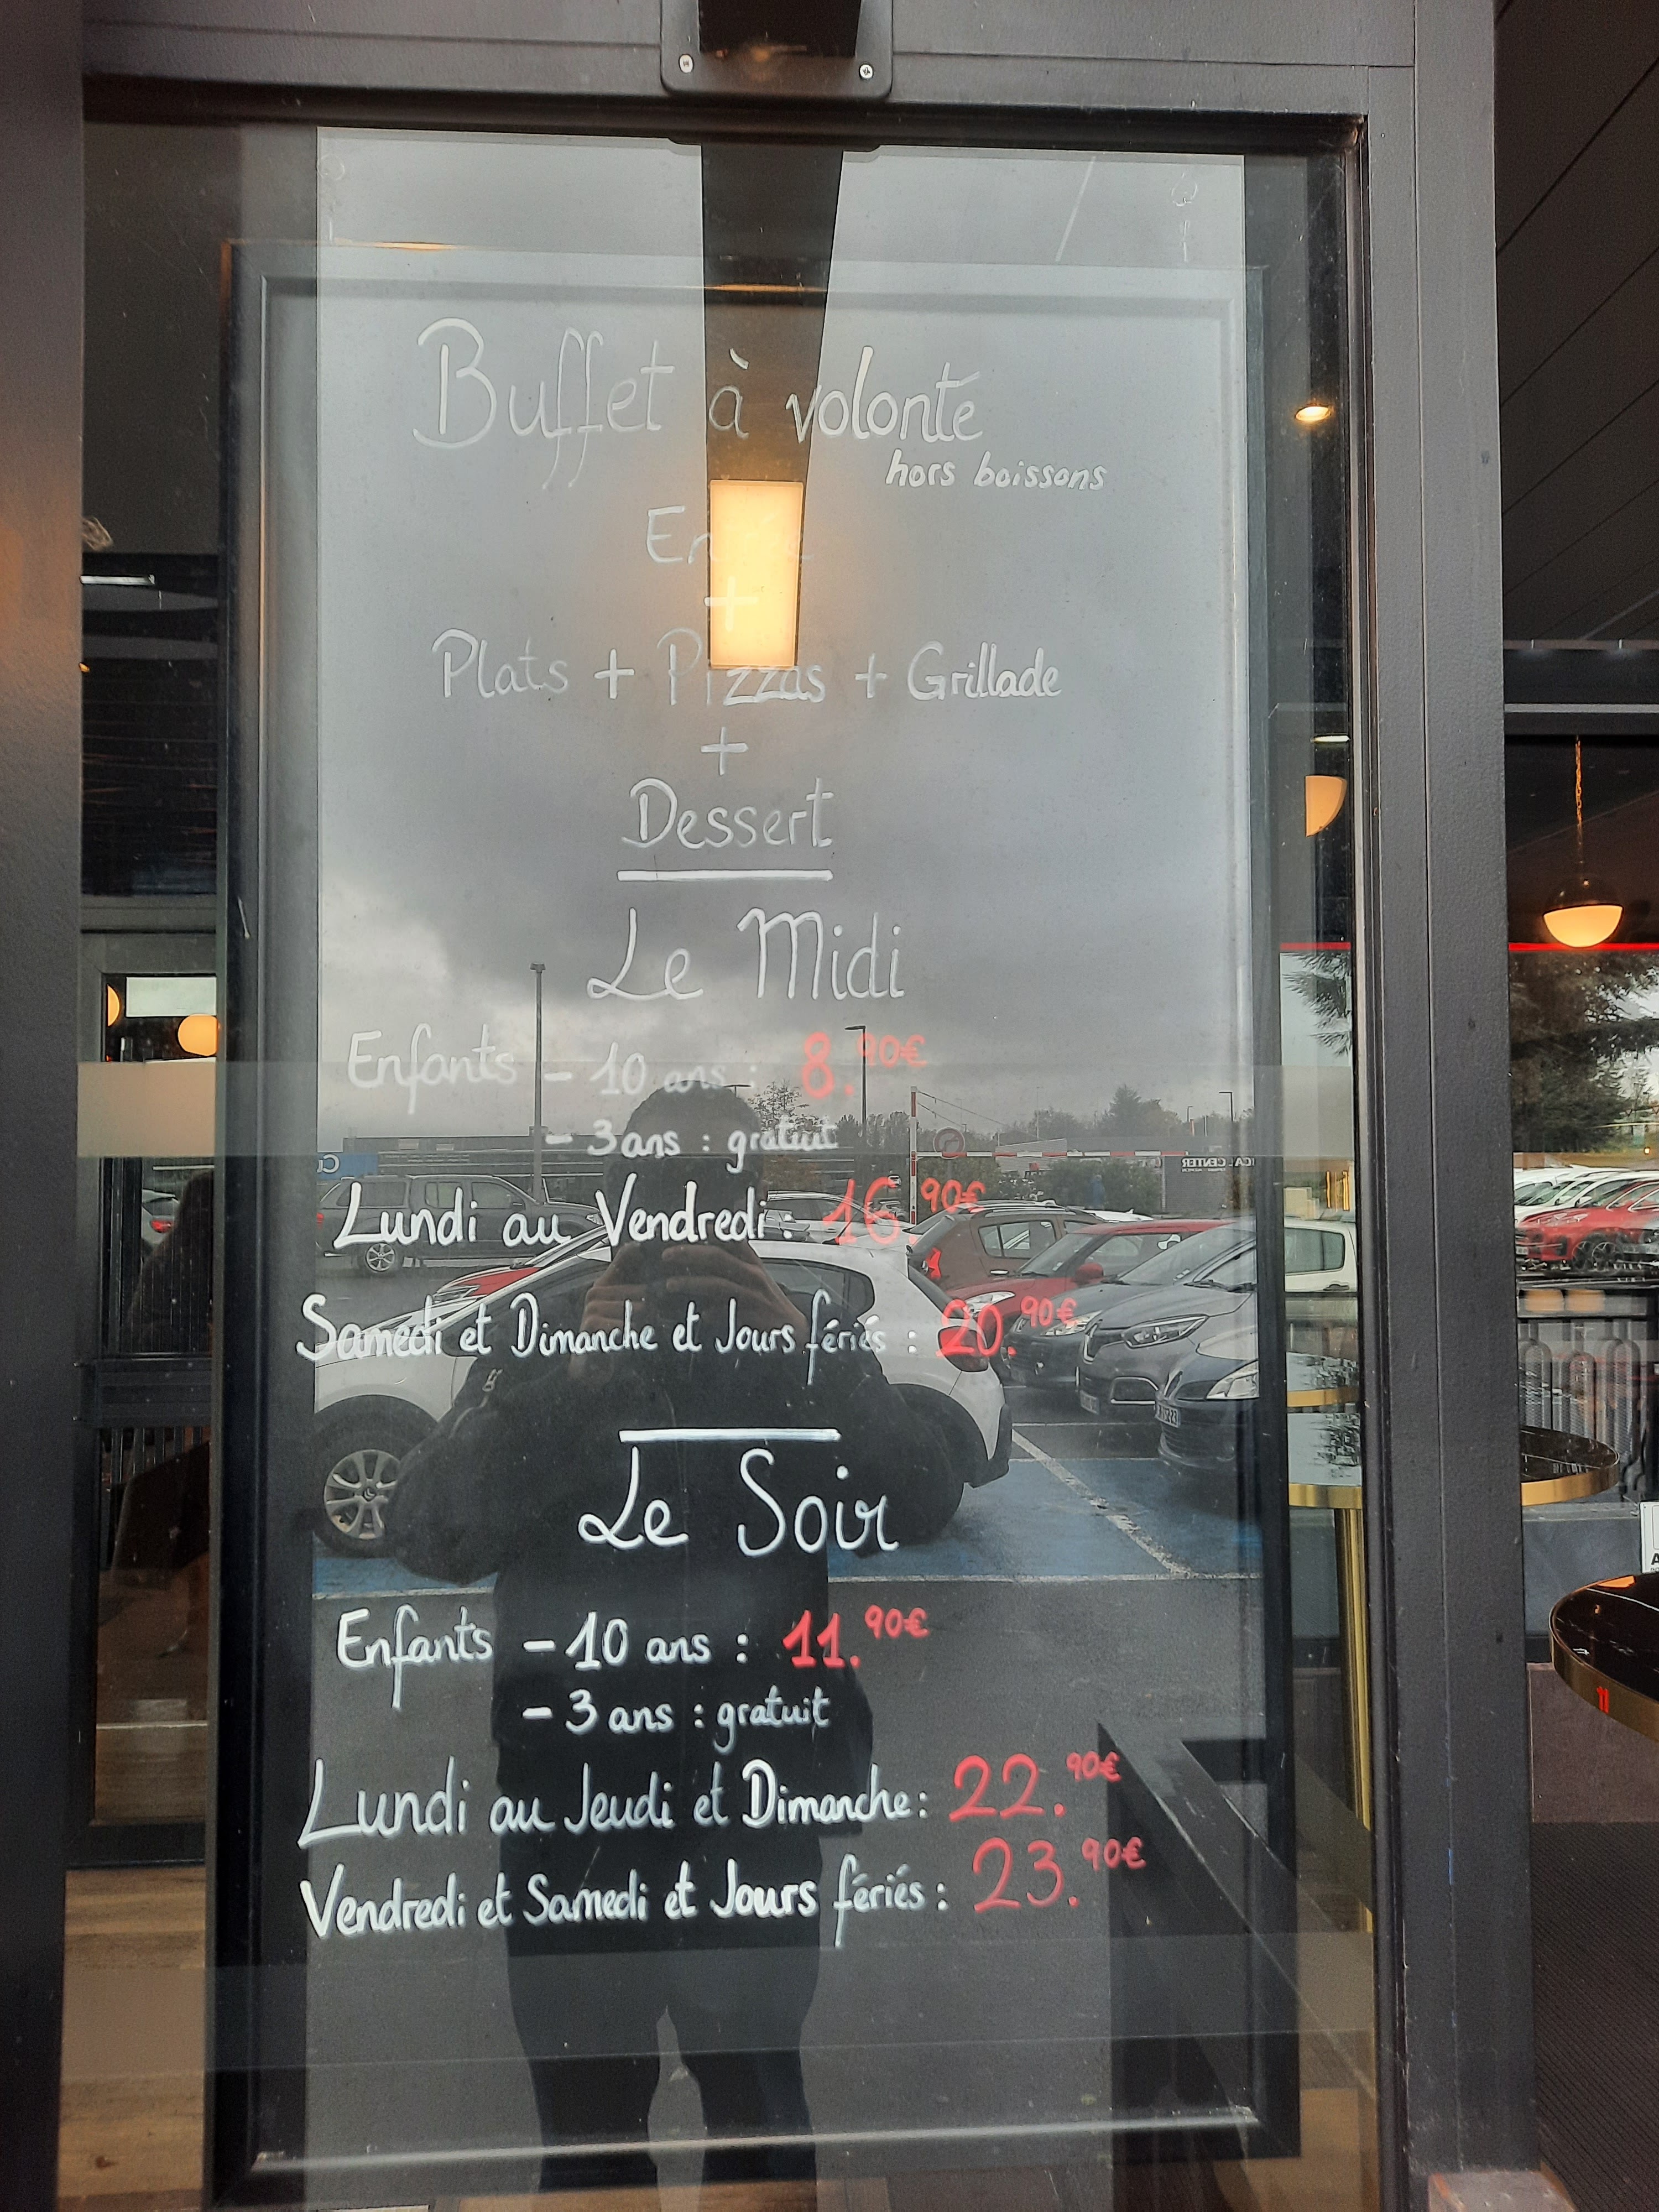 Buffet à volonté
hors boissons
+
Plats + Pizzas + Grillade
+
Dessert
Le Midi
Enfants - 10 ans : 8.90€
- 3 ans : gratuit
Lundi au Vendredi : 16.90€
Samedi et Dimanche et Jours fériés : 20.90€
Le Soir
Enfants - 10 ans : 11.90€
- 3 ans : gratuit
Lundi au Jeudi et Dimanche : 22.90€
Vendredi et Samedi et Jours fériés : 23.90€